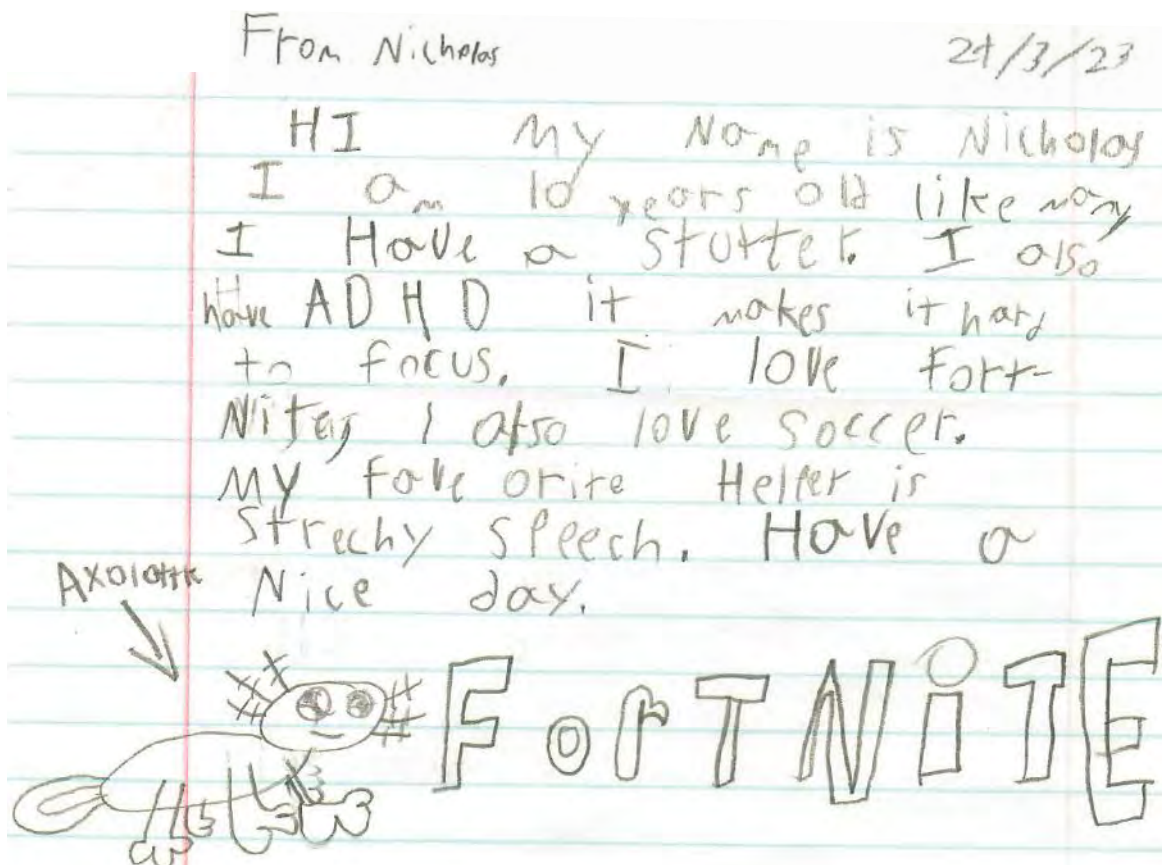 From Nicholas
24/3/23
HI My Name is Nicholas
I am 10 years old like many
I Have a stutter. I also
have ADHD it makes it hard
to focus. I love Fort-
Nite, I also love soccer.
My fave orite Helper is
Strechy speech. Have a
Nice day.
Axolottle
ForTNiTE